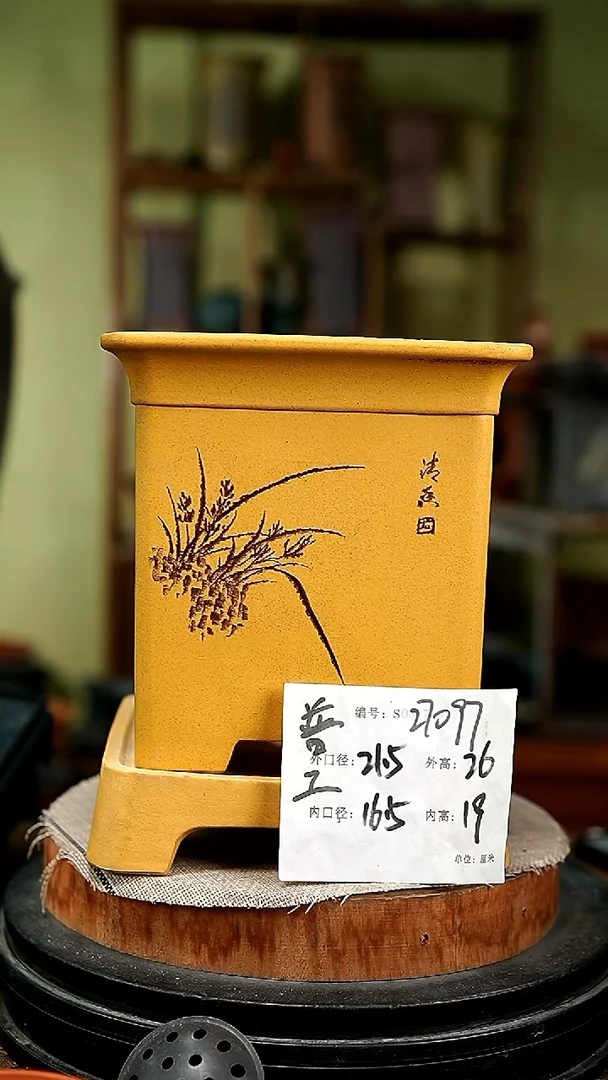 清香
普工
编号: S0 27097
外口径: 21.5 外高: 26
内口径: 16.5 内高: 19
单位: 厘米